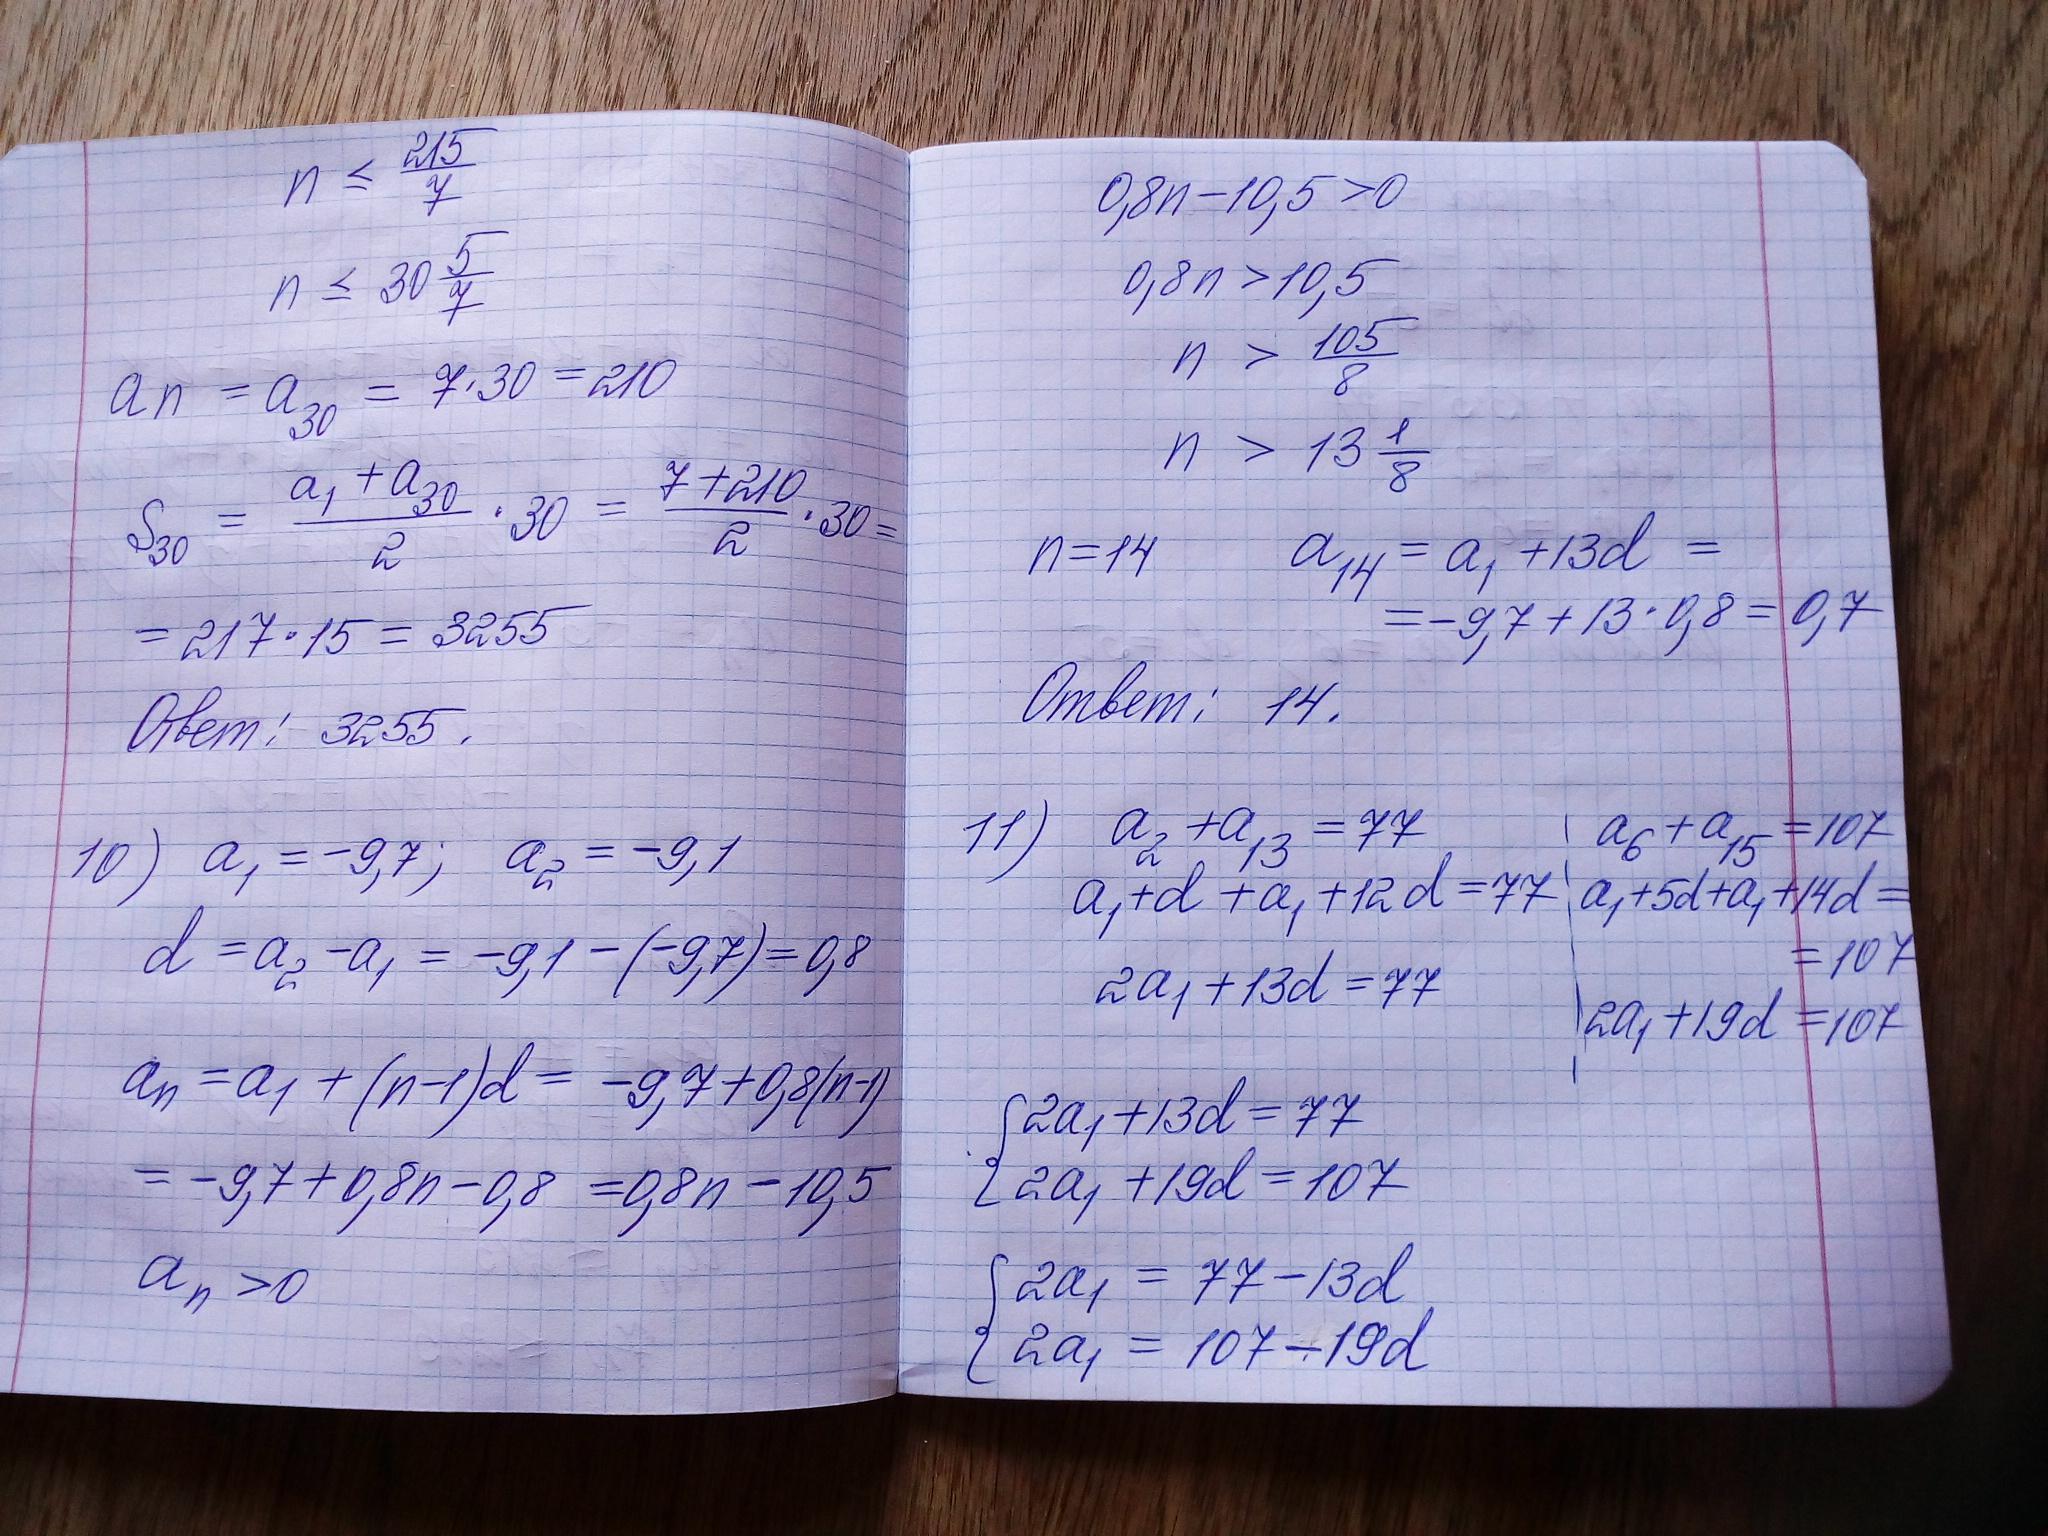 n ≤ 215/7
n ≤ 30 5/7
an = a₃₀ = 7·30 = 210
S₃₀ = (a₁ + a₃₀)/2 · 30 = (7+210)/2 · 30 =
= 217·15 = 3255
Ответ: 3255.
10) a₁ = -9,7; a₂ = -9,1
d = a₂ - a₁ = -9,1 - (-9,7) = 0,8
aₙ = a₁ + (n-1)d = -9,7 + 0,8(n-1)
= -9,7 + 0,8n - 0,8 = 0,8n - 10,5
aₙ > 0
0,8n - 10,5 > 0
0,8n > 10,5
n > 105/8
n > 13 1/8
n = 14 a₁₄ = a₁ + 13d =
= -9,7 + 13·0,8 = 0,7
Ответ: 14.
11) a₂ + a₁₃ = 77
a₁ + d + a₁ + 12d = 77
2a₁ + 13d = 77
a₆ + a₁₅ = 107
a₁ + 5d + a₁ + 14d =
= 107
2a₁ + 19d = 107
{ 2a₁ + 13d = 77
2a₁ + 19d = 107
{ 2a₁ = 77 - 13d
2a₁ = 107 - 19d